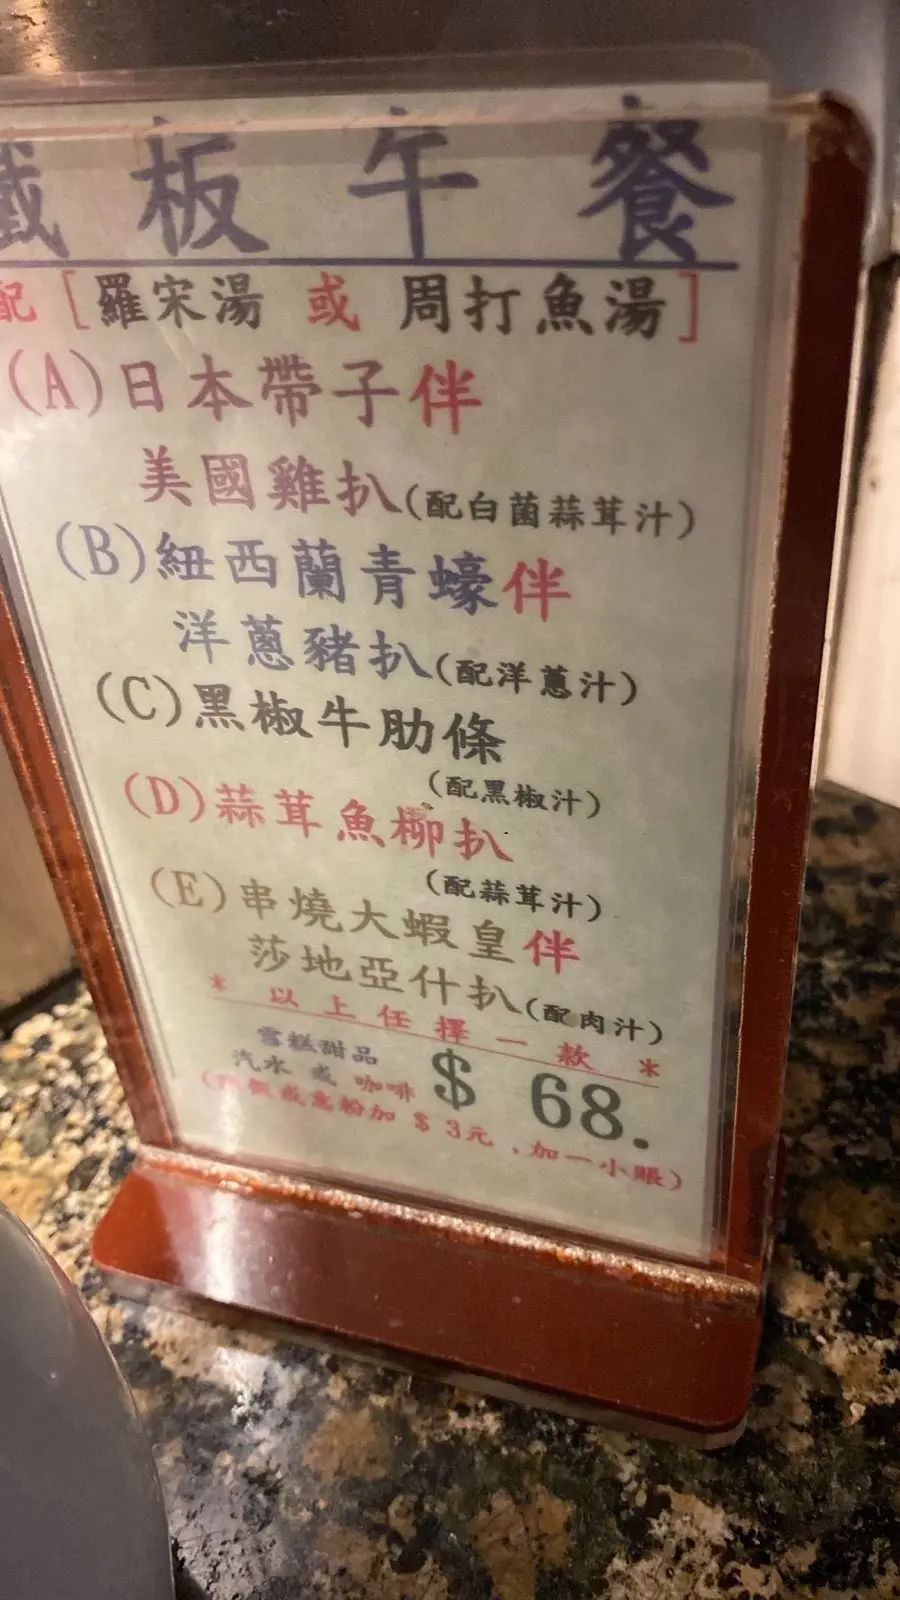 鐵板午餐
配[羅宋湯 或 周打魚湯]
(A)日本帶子伴
美國雞扒(配白菌蒜茸汁)
(B)紐西蘭青蠔伴
洋蔥豬扒(配洋蔥汁)
(C)黑椒牛肋條
(配黑椒汁)
(D)蒜茸魚柳扒
(配蒜茸汁)
(E)串燒大蝦皇伴
莎地亞什扒(配肉汁)
* 以上任擇一款 *
雪糕甜品
汽水 或 咖啡 $ 68.
飯或意粉加 $3元,加一小賬)